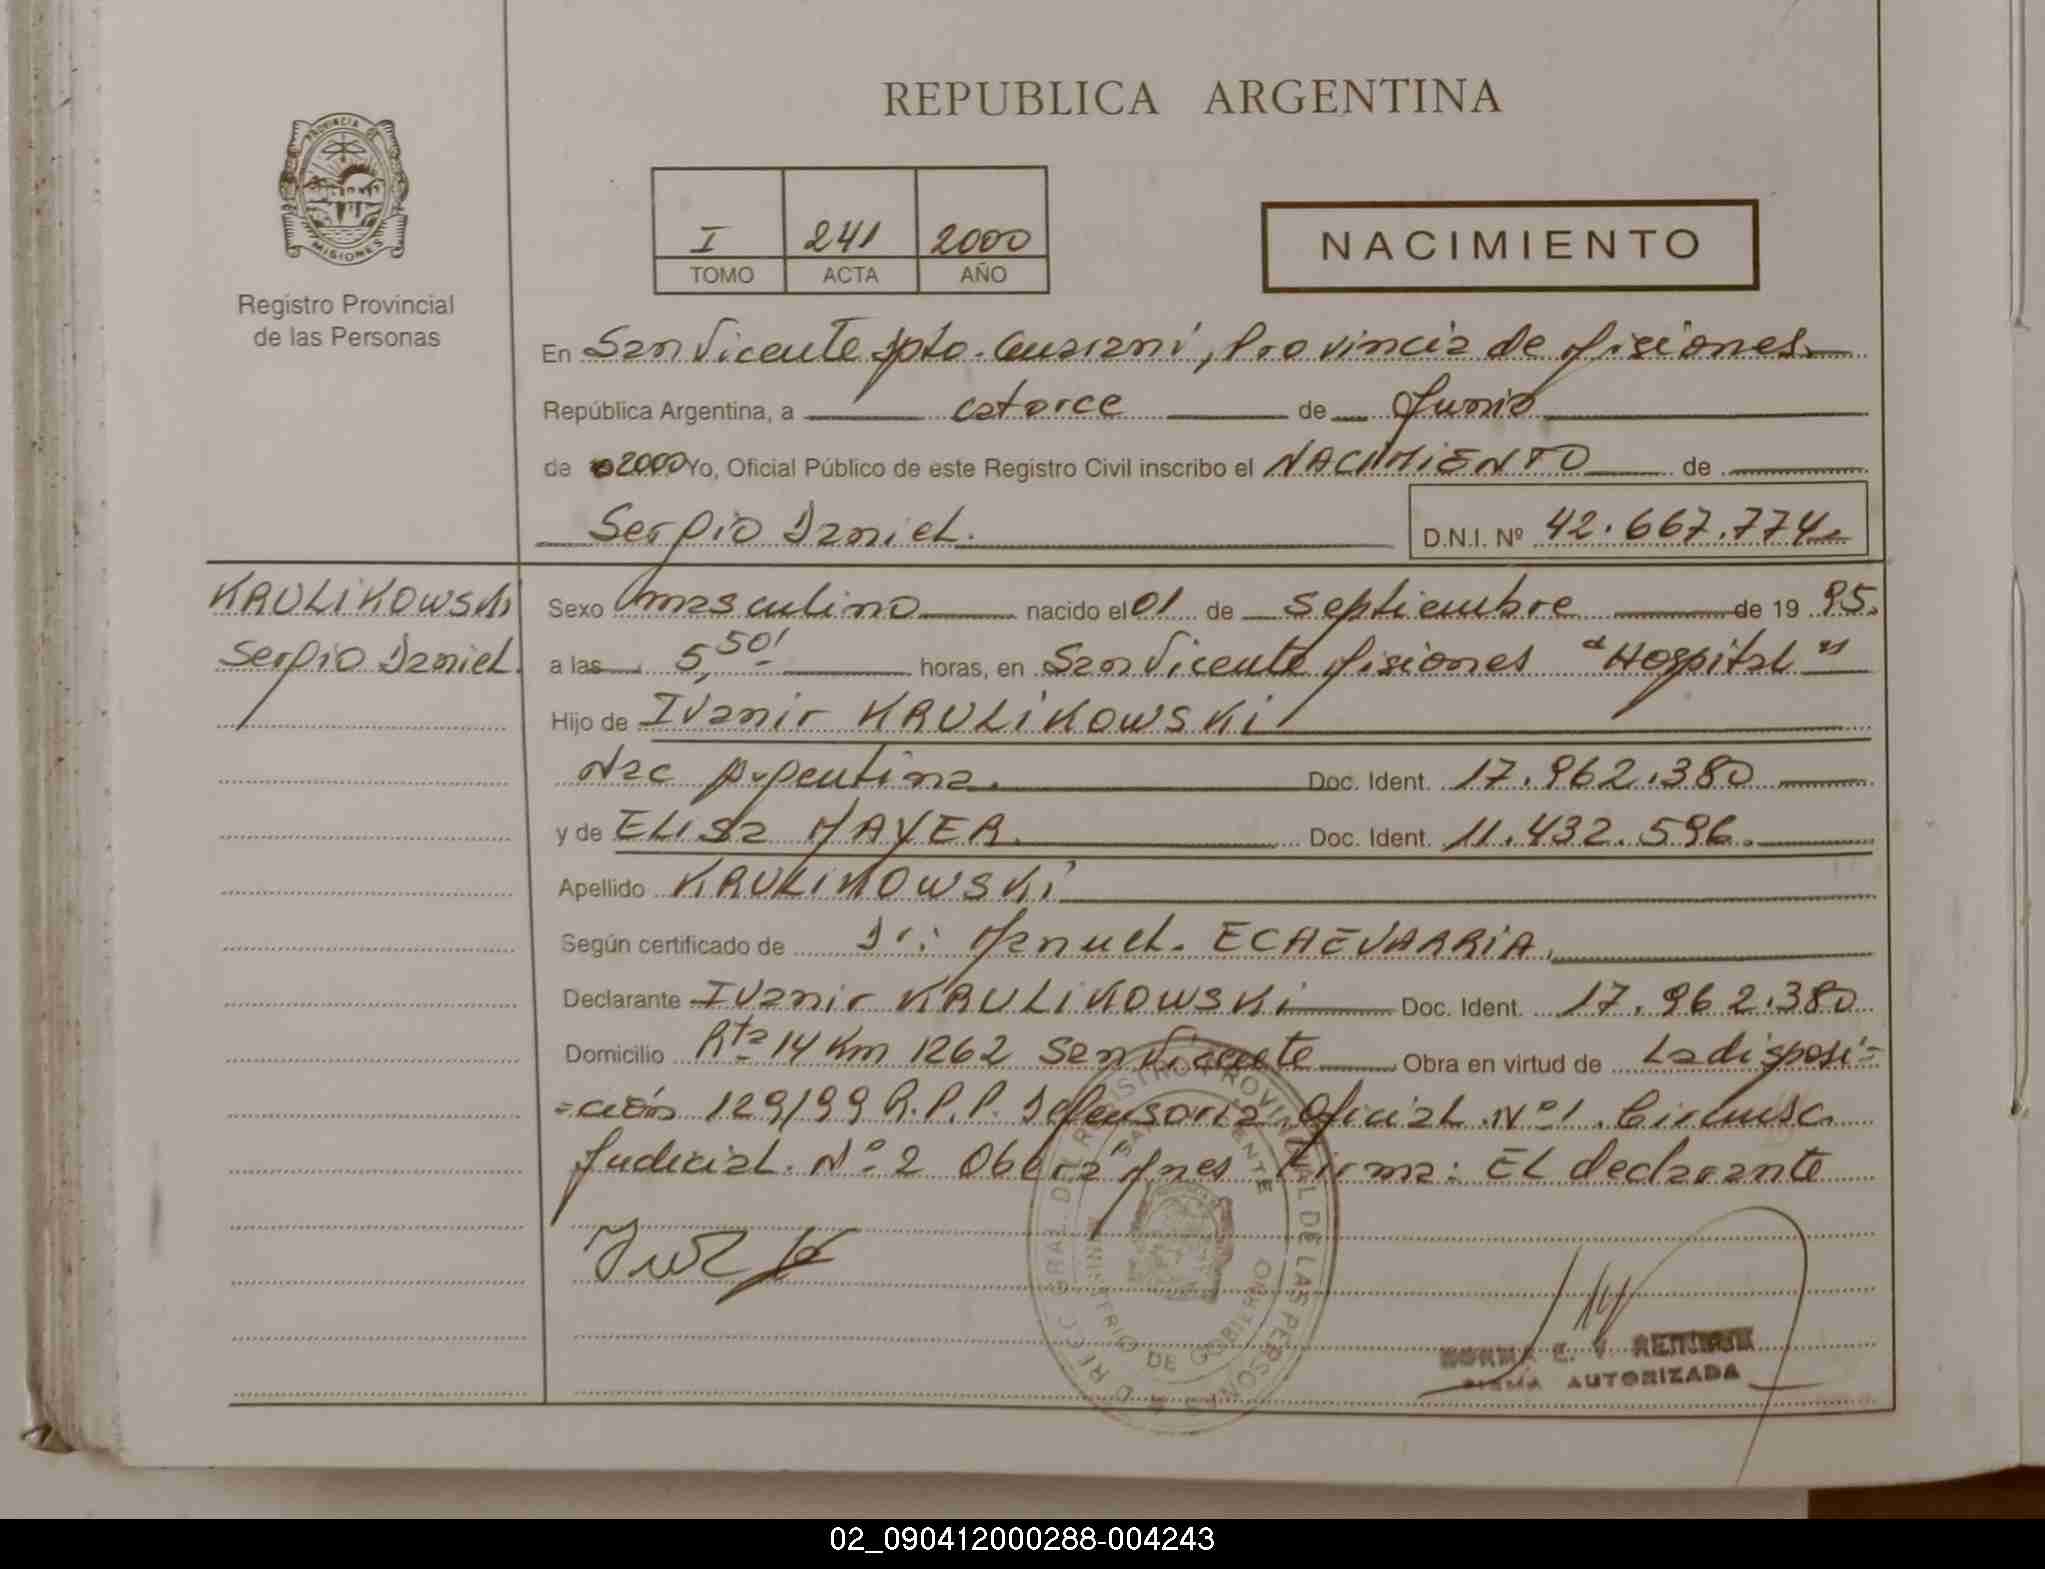 REPUBLICA ARGENTINA
PROVINCIA DE
MISIONES
Registro Provincial
de las Personas
I 241 2000
TOMO ACTA AÑO
NACIMIENTO
En San Vicente Dpto. Guaraní, Provincia de Misiones
República Argentina, a catorce de Junio
de 2000 Yo, Oficial Público de este Registro Civil inscribo el NACIMIENTO de
Sergio Daniel.
D.N.I. Nº 42.667.774
KRULIKOWSKI
Sergio Daniel.
Sexo masculino nacido el 01 de Septiembre de 19 95.
a las 5,50' horas, en San Vicente Misiones "Hospital"
Hijo de Ivanir KRULIKOWSKI
Nac Argentina. Doc. Ident. 17.962.380
y de ELisa MAYER. Doc. Ident. 11.432.596.
Apellido KRULIKOWSKI
Según certificado de Dr: Manuel. ECHEVARRIA.
Declarante Ivanir KRULIKOWSKI Doc. Ident. 17.962.380
Domicilio Rta 14 Km 1262 San Vicente Obra en virtud de La disposi=
=ción 129/99 R.P.P. Defensoria Oficial Nº 1. Circunsc.
Judicial. Nº 2 Oberá Mnes Firma: EL declarante
REGISTRO PROVINCIAL DE LAS PERSONAS
SAN VICENTE
MINISTERIO DE GOBIERNO
NORMA E. V.
FIRMA AUTORIZADA
02_090412000288-004243